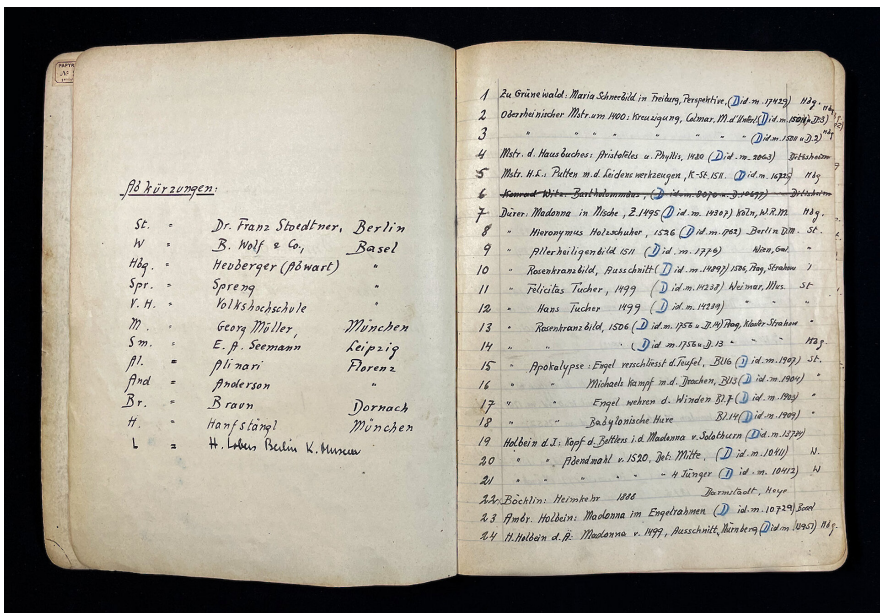 Abkürzungen:
St. = Dr. Franz Stoedtner, Berlin
W = B. Wolf & Co., Basel
Hbg. = Heuberger (Abwart) "
Spr. = Spreng "
V.H. = Volkshochschule "
M. = Georg Müller, München
Sm. = E. A. Seemann Leipzig
Al. = Alinari Florenz
And = Anderson "
Br. = Braun Dornach
H. = Hanfstängl München
L = Berlin K. Museum
1 Zu Grünewald: Maria Schneebild in Freiburg, Perspektive, (Did. m. 17429) Hbg.
2 Oberrheinischer Mstr. um 1400: Kreuzigung, Colmar, M. d'Unterl. (Did. m. 15011 u. D.3) Hbg
3 " " " " " " (Did. m. 15011 u. D.2) Hbg
4 Mstr. d. Hausbuches: Aristoteles u. Phyllis, 1480 (Did. m. 2063) Dittsheim
5 Mstr. H.L.: Putten m. d. Leidenswerkzeugen, K-St. 1511. (Did. m. 16725) Hbg
6 Konrad Witz: Bartholomäus, (Did. m. 8070 u. D. 10677) Dittsheim
7 Dürer: Madonna in Nische, Z. 1495 (Did. m. 14307) Köln, W.R.M. Hbg.
8 " Hieronymus Holzschuher, 1526 (Did. m. 1762) Berlin D.M. St.
9 " Allerheiligenbild 1511 (Did. m. 1776) Wien, Gal. "
10 " Rosenkranzbild, Ausschnitt (Did. m. 14897) 1506, Prag, Strahow
11 " Felicitas Tucher, 1499 (Did. m. 14238) Weimar, Mus. St
12 " Hans Tucher 1499 (Did. m. 14239) " " "
13 " Rosenkranzbild, 1506 (Did. m. 1756 u. D. 14) Prag, Kloster Strahow "
14 " " (Did. m. 1756 u. D. 13 " " Hbg.
15 " Apokalypse: Engel verschliesst d. Teufel, Bl 16 (Did. m. 1907) St.
16 " Michaels Kampf m. d. Drachen, Bl 13 (Did. m. 1904) "
17 " Engel wehren d. Winden Bl. 7 (Did. m. 1903) "
18 " Babylonische Hure Bl. 14 (Did. m. 1909) "
19 Holbein d. J: Kopf d. Bettlers i. d. Madonna v. Solothurn (Did. m. 13724)
20 " " Abendmahl v. 1520, Det: Mitte, (Did. m. 10411) W.
21 " " " " 4 Jünger (Did. m. 10412) W
22 Böcklin: Heimkehr 1888 Darmstadt, Heye
23 Ambr. Holbein: Madonna im Engelrahmen (Did. m. 10729) Basel
24 H. Holbein d. Ä: Madonna v. 1499, Ausschnitt, Nürnberg (Did. m. 13951) Hbg.